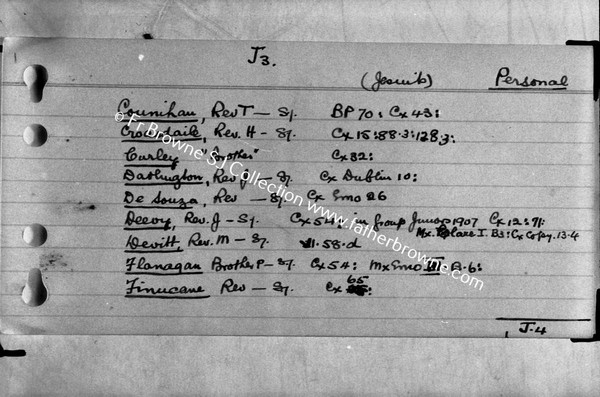 J3.
(Jesuits) Personal
Counihan, Rev T — SJ. BP 70: Cx 43:
Croasdaile, Rev. H - SJ. Cx 15:88.3:128.3:
Curley "Brother" Cx 32:
Darlington, Rev J — SJ. Cx Dublin 10:
De Souza, Rev — SJ Cx Emo 26
Deevy, Rev. J - SJ. Cx 54: in Group Juniors 1907 Cx 12:71:
Mx. I. B3: Cx Copy. 13-4
Devitt, Rev. M — SJ. 58.d
Flanagan Brother P — SJ. Cx 54: Mx Emo III B.6:
Finucane Rev — SJ. Cx 65:
J-4
© Fr Browne SJ Collection www.fatherbrowne.com